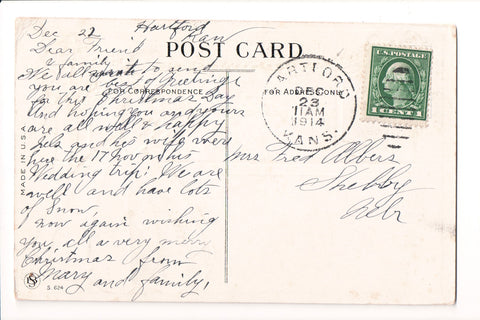 Dec 22 Hartford
Kan
Dear Friend
& family
POST CARD
We all want to send
you are best of greetings
FOR CORRESPONDENCE
FOR ADDRESS ONLY
for this Christmas Day
and hoping you and yours
are all well & happy
and his wife were
here the 17 Nov on his
Wedding trip. We are
well and have lots
of Snow,
now again wishing
you all a very merry
Christmas from
Mary and family,
MADE IN U.S.A.
S. 624
HARTFORD
DEC
23
11AM
1914
KANS.
U.S. POSTAGE
1 CENT 1
Mrs Fred Albers
Shelby
Nebr